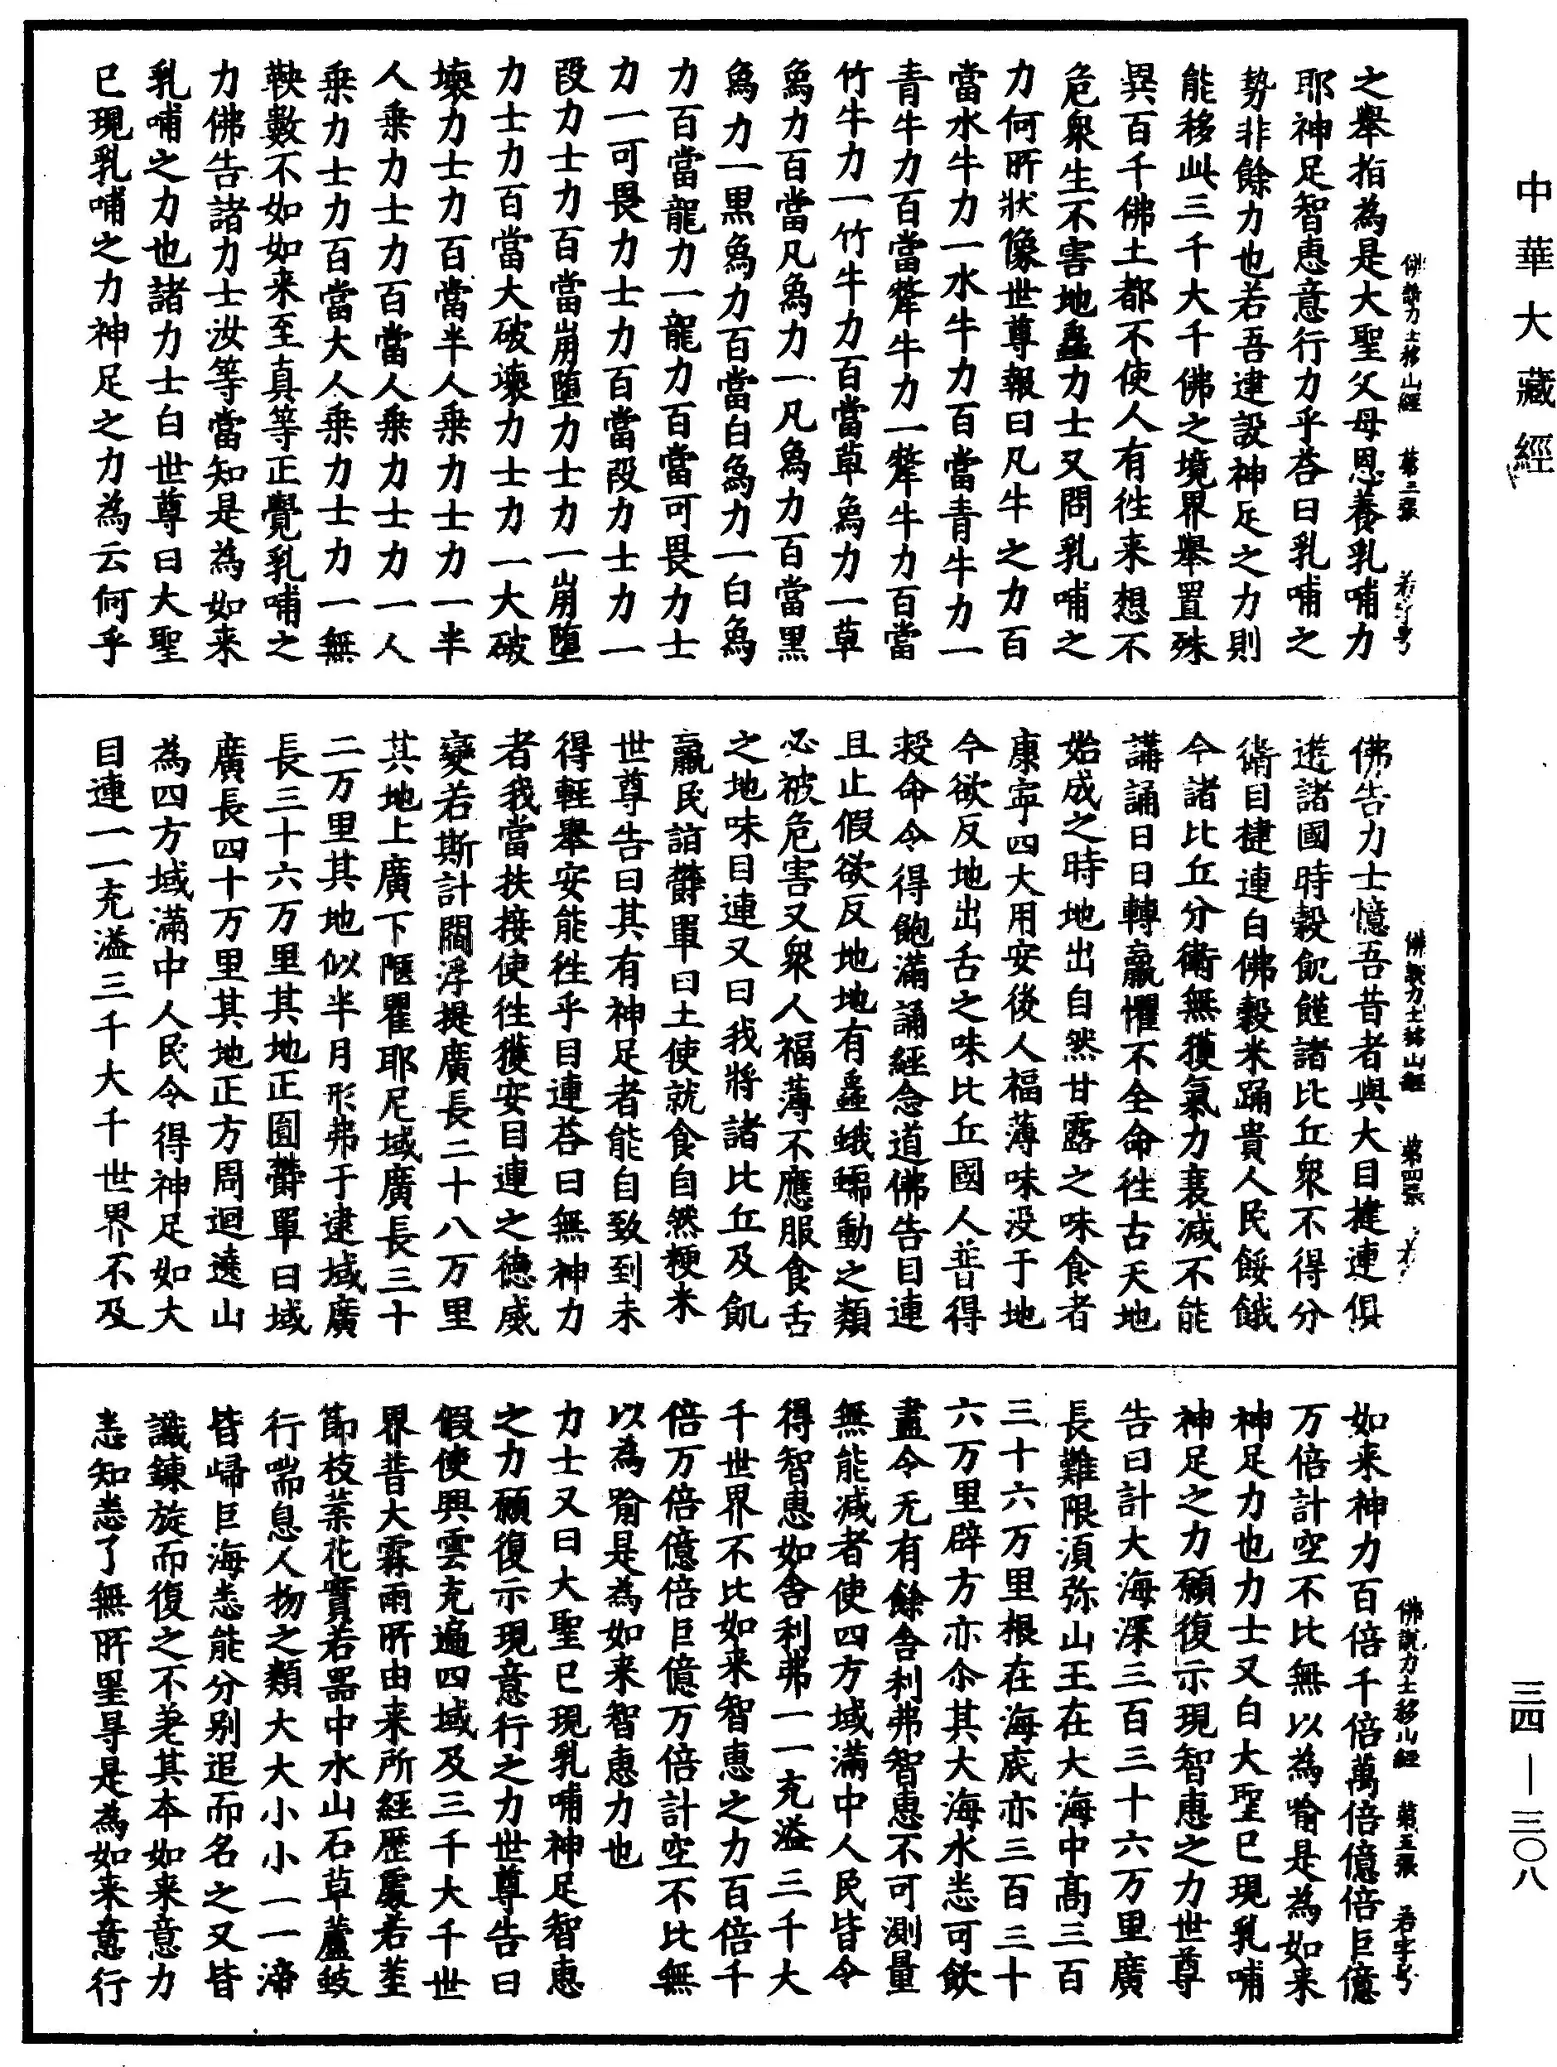 中華大藏經
三四—三〇八
佛說力士移山經 第三張 若字号
之舉指為是大聖父母恩養乳哺力
耶神足智惠意行力乎荅曰乳哺之
勢非餘力也若吾建設神足之力則
能移此三千大千佛之境界舉置殊
異百千佛土都不使人有徃来想不
危衆生不害地蟲力士又問乳哺之
力何所狀像世尊報曰凡牛之力百
當水牛力一水牛力百當青牛力一
青牛力百當犛牛力一犛牛力百當
竹牛力一竹牛力百當草為力一草
為力百當凡為力一凡為力百當黑
為力一黒為力百當白為力一白為
力百當龍力一龍力百當可畏力士
力一可畏力士力百當段力士力一
段力士力百當崩墮力士力一崩墮
力士力百當大破壊力士力一大破
壊力士力百當半人乗力士力一半
人乗力士力百當人乗力士力一人
乗力士力百當大人乗力士力一無
鞅數不如如来至真等正覺乳哺之
力佛告諸力士汝等當知是為如来
乳哺之力也諸力士白世尊曰大聖
已現乳哺之力神足之力為云何乎
佛說力士移山經 第四張 若
佛告力士憶吾昔者與大目揵連俱
遊諸國時穀飢饉諸比丘衆不得分
衛目揵連白佛穀米踊貴人民餧餓
今諸比丘分衛無獲氣力衰减不能
講誦日日轉羸懼不全命徃古天地
始成之時地出自然甘露之味食者
康寜四大用安後人福薄味没于地
今欲反地出舌之味比丘國人普得
救命令得飽滿誦經念道佛告目連
且止假欲反地地有蟲蛾蠕動之類
必被危害又衆人福薄不應服食舌
之地味目連又曰我將諸比丘及飢
羸民詣欝單曰土使就食自然粳米
世尊告曰其有神足者能自致到未
得輕舉安能徃乎目連荅曰無神力
者我當扶接使徃獲安目連之德威
變若斯計閻浮提廣長二十八万里
其地上廣下陿瞿耶尼域廣長三十
二万里其地似半月形弗于逮域廣
長三十六万里其地正圎欝單曰域
廣長四十万里其地正方周迴遶山
為四方域滿中人民令得神足如大
目連一一充溢三千大千世界不及
佛說力士移山經 第五張 若字号
如来神力百倍千倍萬倍億倍巨億
万倍計空不比無以為喻是為如来
神足力也力士又白大聖已現乳哺
神足之力願復示現智惠之力世尊
告曰計大海深三百三十六万里廣
長難限湏弥山王在大海中髙三百
三十六万里根在海底亦三百三十
六万里辟方亦尒其大海水悉可飲
盡令无有餘舎利弗智惠不可測量
無能减者使四方域滿中人民皆令
得智惠如舎利弗一一充溢三千大
千世界不比如来智惠之力百倍千
倍万倍億倍巨億万倍計空不比無
以為喻是為如来智惠力也
力士又曰大聖已現乳哺神足智惠
之力願復示現意行之力世尊告曰
假使興雲充遍四域及三千大千世
界普大霖雨所由来所經歷處若莖
節枝葉花實若器中水山石草蘆蚑
行喘息人物之類大大小小一一渧
皆歸巨海悉能分别追而名之又皆
識鍊旋而復之不差其本如来意力
悉知悉了無所罣㝵是為如来意行